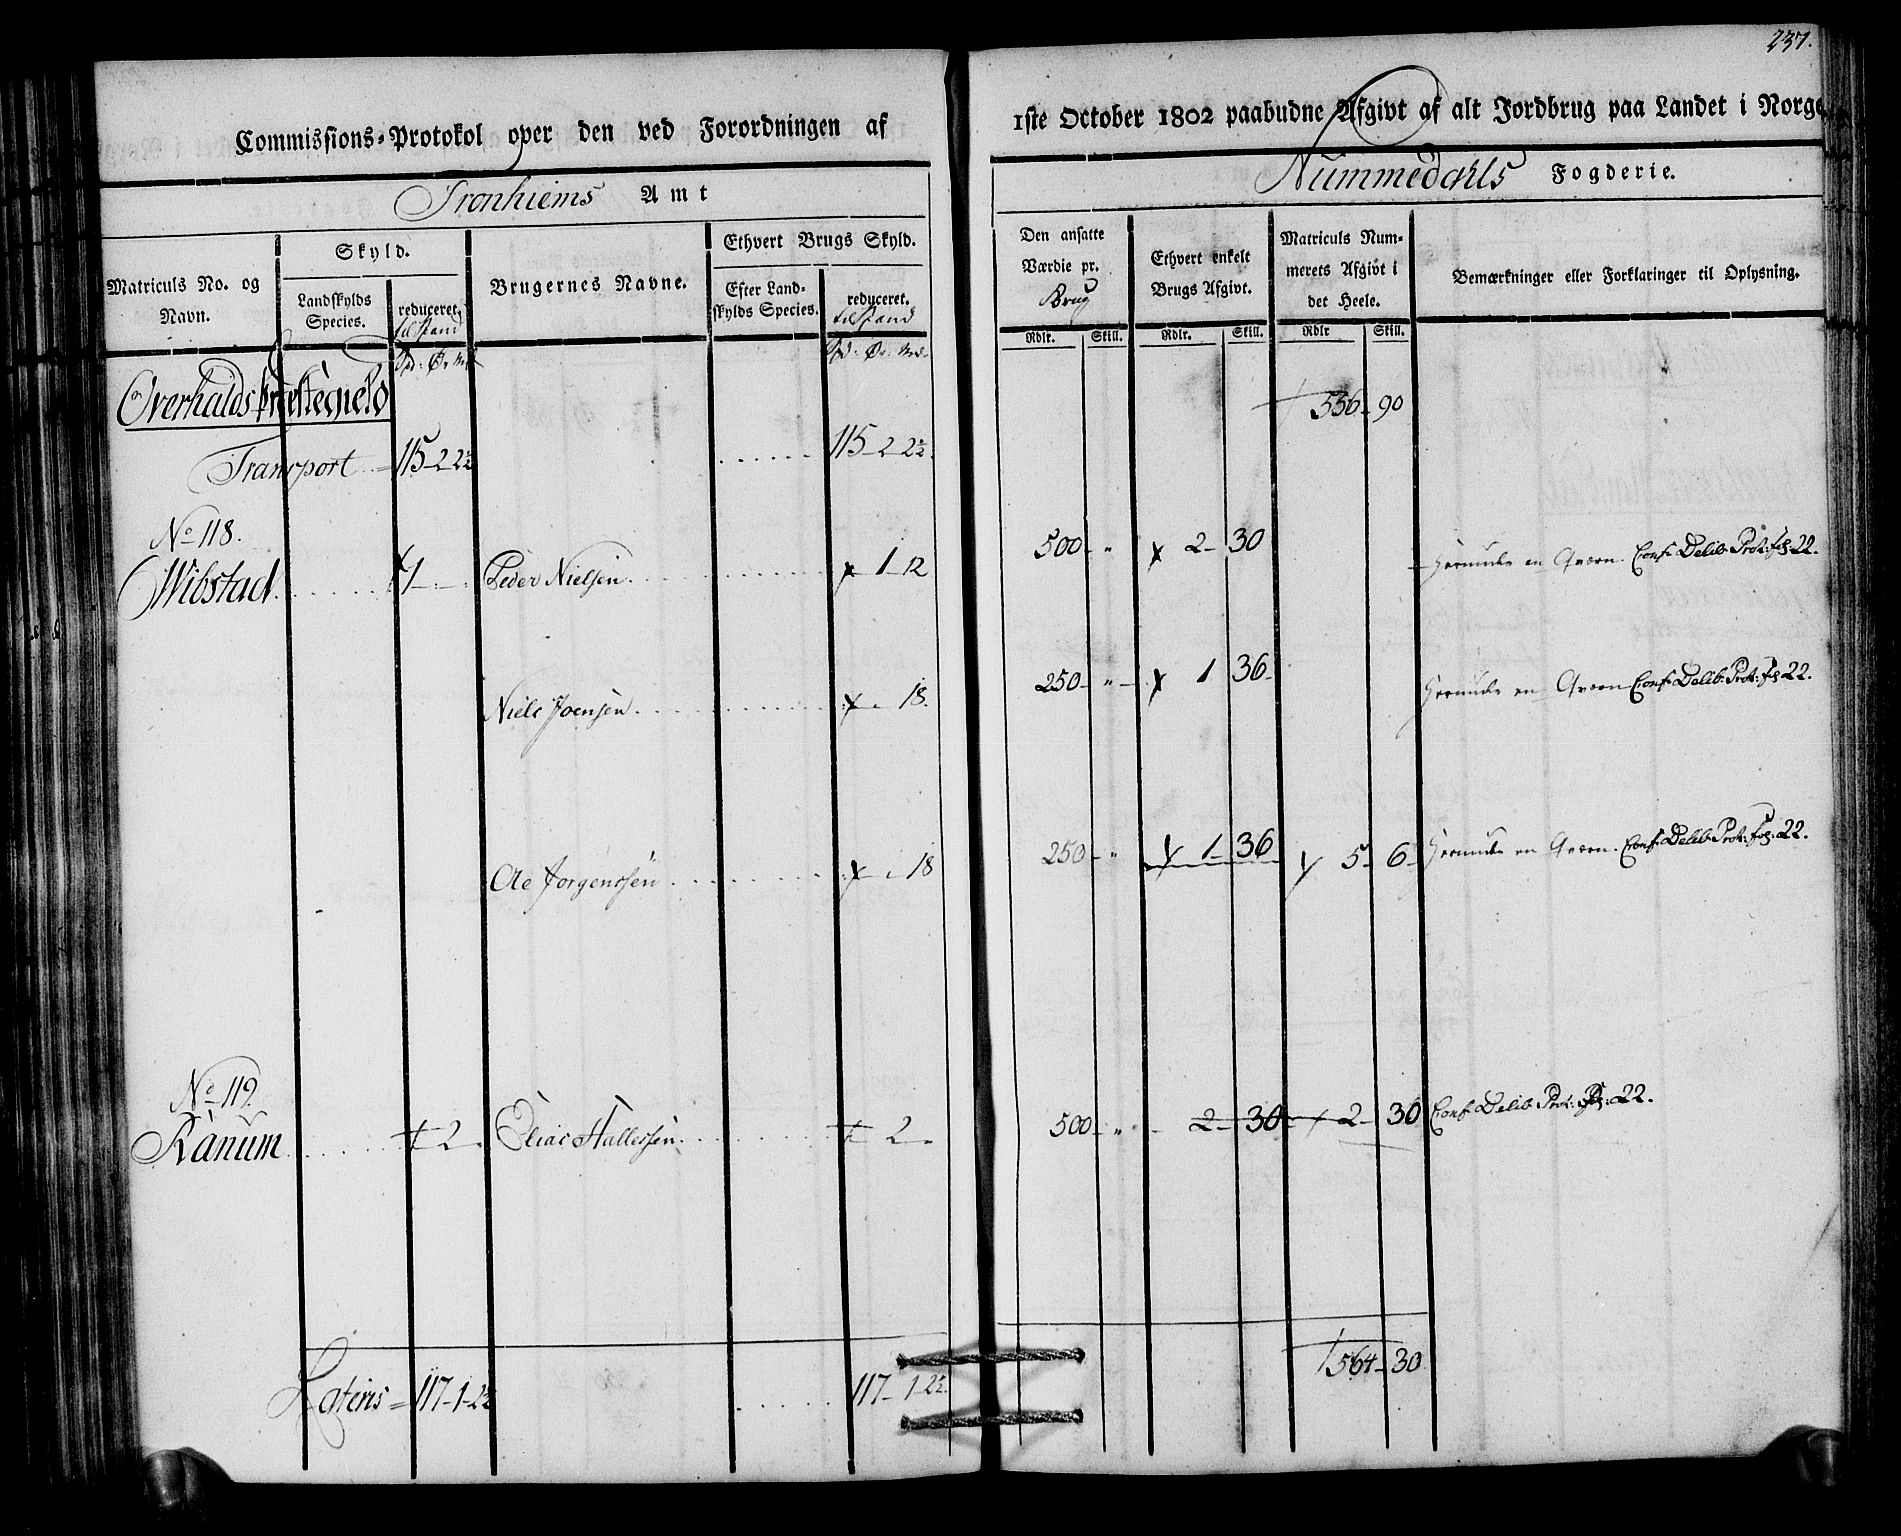 237.
Commissions=Protokol over den ved Forordningen af
1ste October 1802 paabudne Afgivt af alt Jordbrug paa Landet i Norge,
Tronhiems Amt
Nummedahls Fogderie.
Matriculs No. og Navn.
Skyld.
Landskylds Species.
reduceret.
Brugernes Navne.
Ethvert Brugs Skyld.
Efter Landskylds Species.
reduceret.
Den ansatte Værdie pr. Brug
Ethvert enkelt Brugs Afgivt.
Matriculs Nummerets Afgivt i det Heele.
Bemærkninger eller Forklaringer til Oplysning.
Rdlr. Skill. Rdlr. Skill. Rdlr Skill.
Overhalds præstegield
556 - 90
Transport 115 - 2 2½ 115 - 2 2½
No 118.
Wibstad 1 Peder Nielsen 1 - 12 500 - " 2 - 30 en Qværn. Conf: Delib: Prot: fol: 22.
Niels Joensen 18. 250 - " 1 36 en Qværn Conf: Delib: Prot: fol: 22.
Ole Jorgenssen 18 250 - " 1 - 36 5 - 6 en Qværn. Conf: Delib: Prot: fol: 22.
No 119.
Ranum 2 Elias Hallessen 2 500 - " 2 - 30 2 - 30 Conf: Delib: Prot: fol: 22.
Lateris = 117 - 1 - 2½ 117 - 1 - 2½ 564 - 30